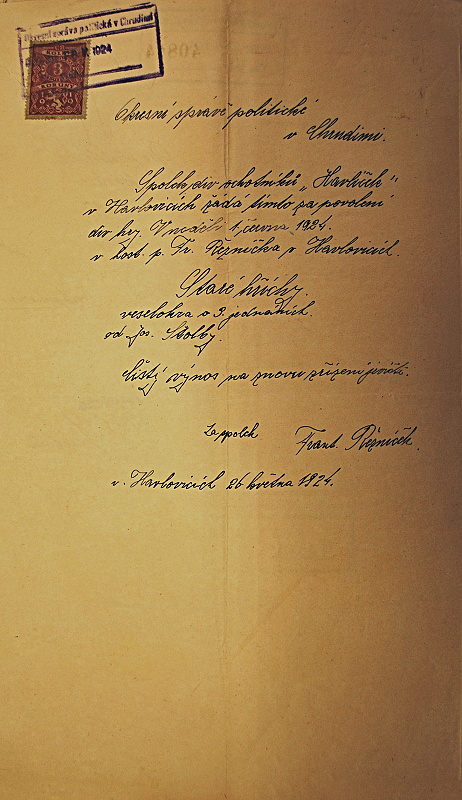 Okresní správa politická v Chrudimi
1924
KOLEK
3
KORUNY
Okresní správě politické
v Chrudimi.
Spolek div. ochotníků „Havlíček"
v Havlovicích žádá tímto za povolení
div. hry. V neděli 1 června 1924.
v host. p. Fr. Řezníčka v Havlovicích.
Staré hříchy.
veselohra o 3. jednáních.
od Jos. Štolby.
Čistý výnos na znovu zřízení jeviště.
Za spolek
Frant. Řezníček.
v. Havlovicích 26 května 1924.